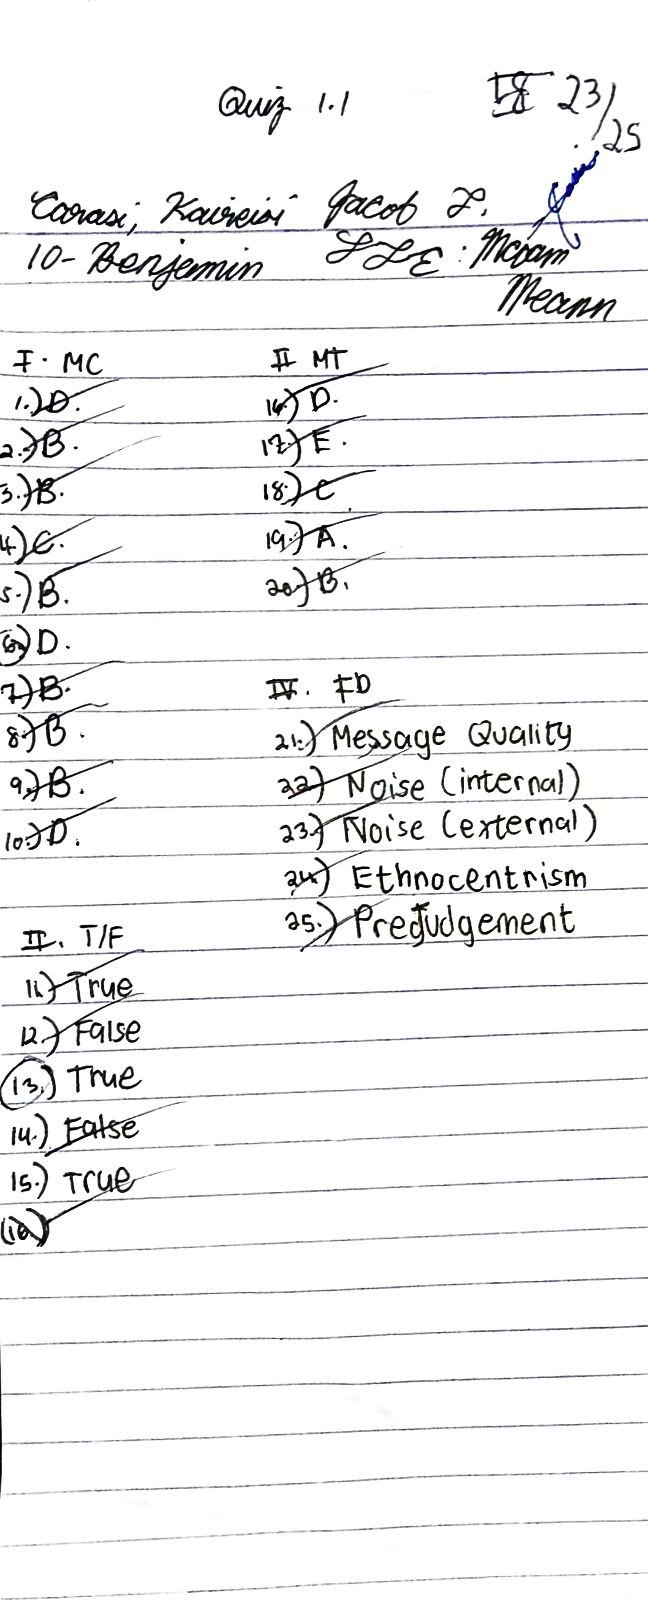 Quiz 1.1
23/25
Carasi, Kaireisi Jacob L.
10-Benjemin LLE: Mcbam
Meann
I. MC
1.) D.
2.) B.
3.) B.
4.) C.
5.) B.
6.) D.
7.) B.
8.) B.
9.) B.
10.) D.
II. T/F
11.) True
12.) False
13.) True
14.) False
15.) True
(16)
II MT
16.) D.
17.) E.
18.) C
19.) A.
20.) B.
IV. FD
21.) Message Quality
22.) Noise (internal)
23.) Noise (external)
24.) Ethnocentrism
25.) Prejudgement